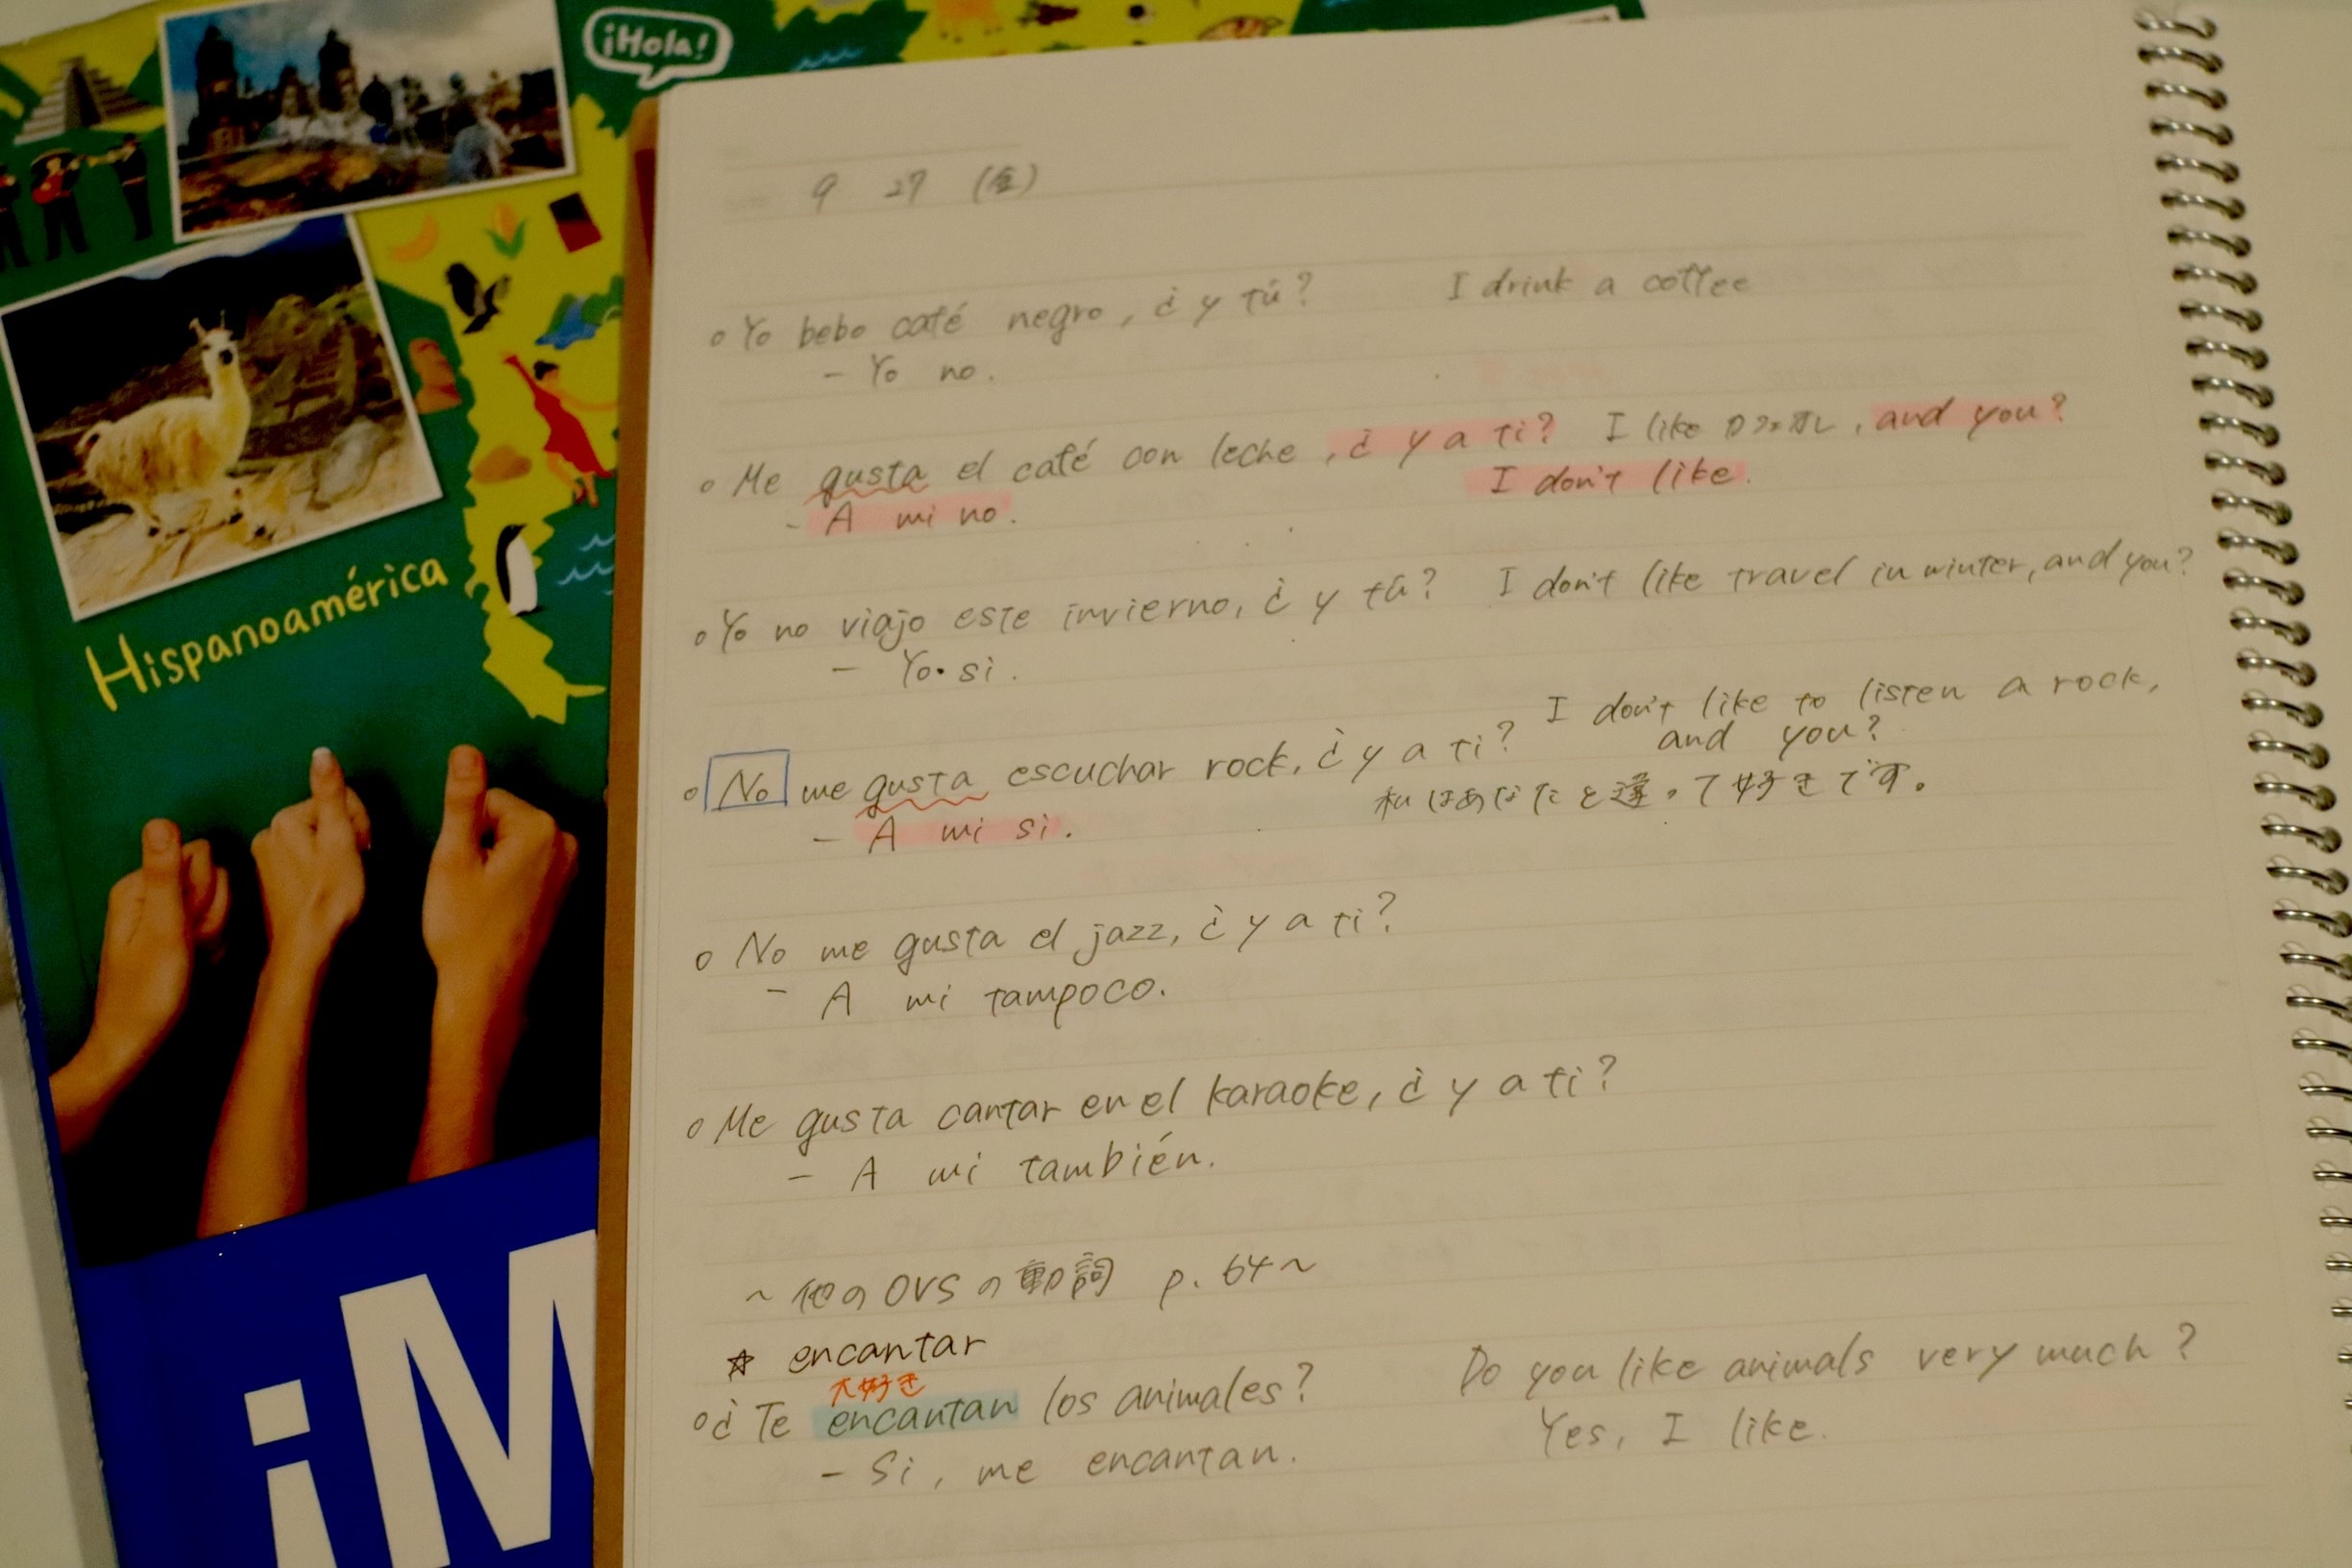 ¡Hola!
Hispanoamérica
¡M
9 27 (金)
○ Yo bebo café negro, ¿y tú? I drink a coffee
– Yo no.
○ Me gusta el café con leche, ¿y a ti? I like カフェオレ, and you?
– A mi no. I don't like.
○ Yo no viajo este invierno, ¿y tú? I don't like travel in winter, and you?
– Yo・si.
○ No me gusta escuchar rock, ¿y a ti? I don't like to listen a rock,
and you?
私はあなたと違って好きです。
– A mi si.
○ No me gusta el jazz, ¿y a ti?
– A mi tampoco.
○ Me gusta cantar en el karaoke, ¿y a ti?
– A mi también.
~ 他のOVSの動詞 p. 64 ~
☆ encantar
大好き
○ ¿Te encantan los animales? Do you like animals very much?
– Si, me encantan. Yes, I like.